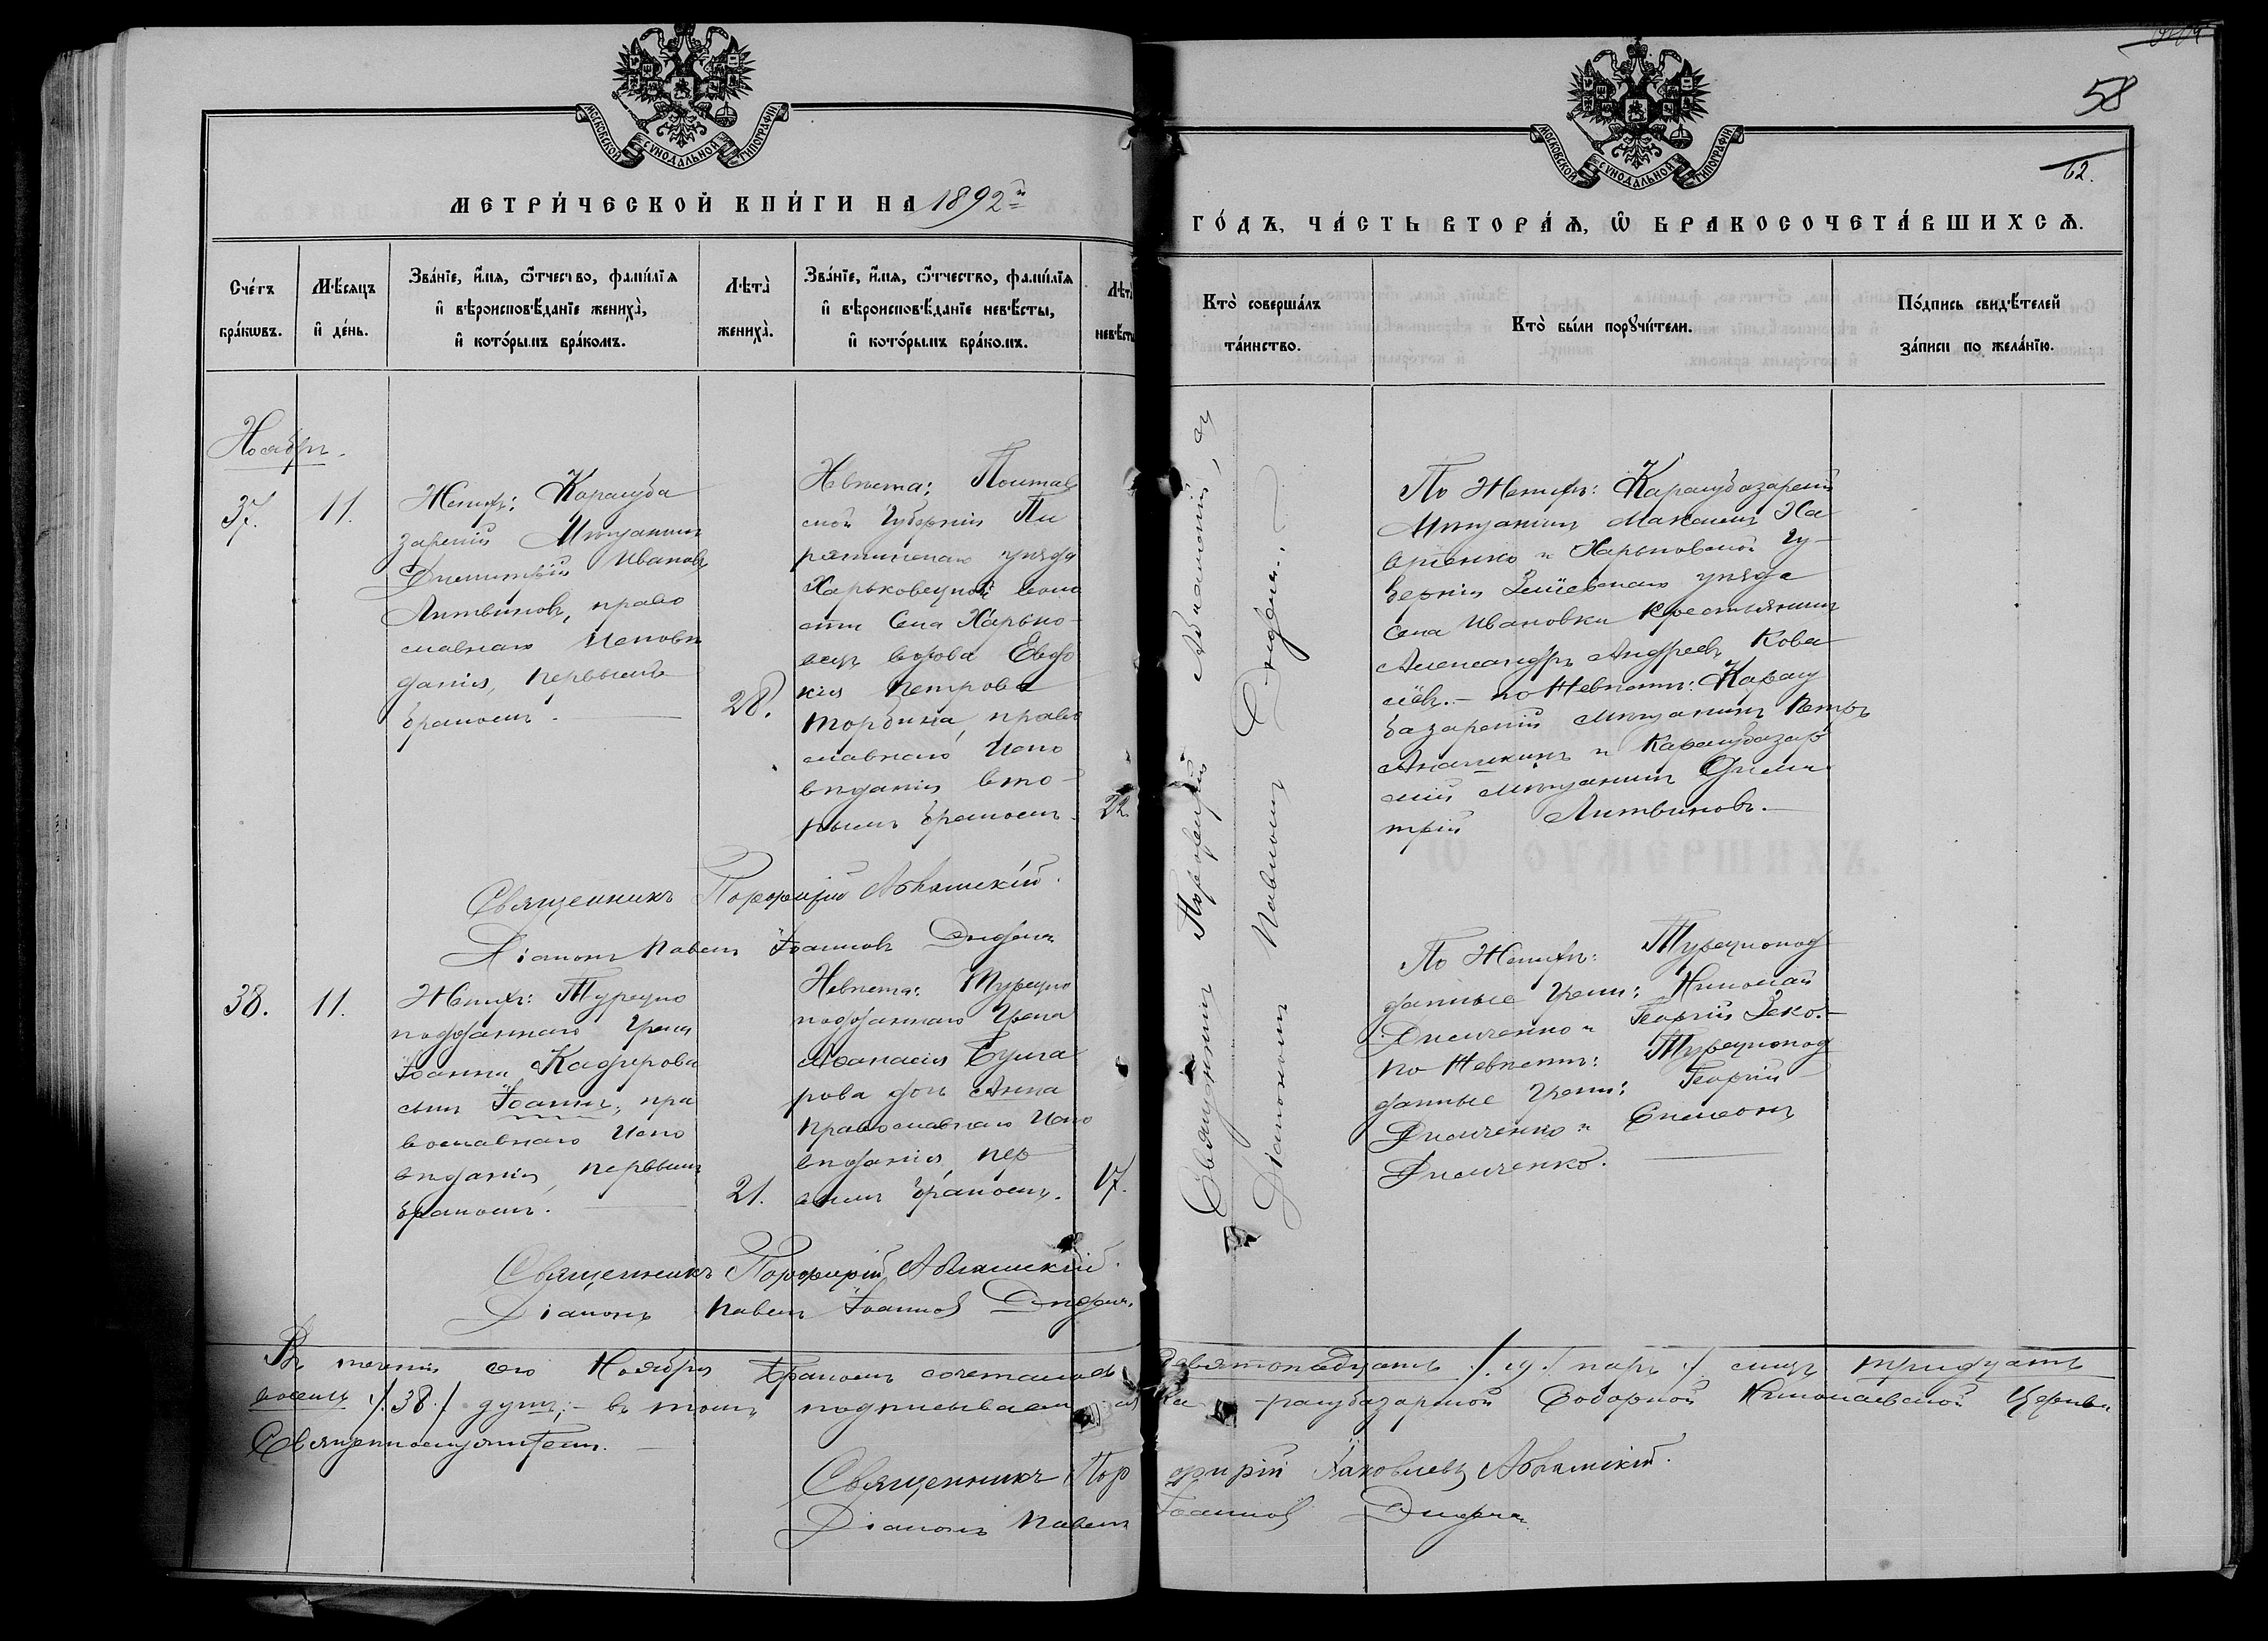 58
62.
МОСКОВСКОЙ СѴНОДАЛЬНОЙ ТИПОГРАФІИ
МОСКОВСКОЙ СѴНОДАЛЬНОЙ ТИПОГРАФІИ
МЕТРИ́ЧЕСКОЙ КНИ́ГИ НА 1892й
ГО́ДЪ, ЧА́СТЬ ВТОРА́Ѧ, Ѽ БРАКОСОЧЕТА́ВШИХСѦ.
Сче́тъ
бра́кѡвъ.
Мѣ́сѧцъ
и҆ де́нь.
Зва́нїе, и҆́мѧ, ѻ҆́тчество, фамилїѧ
и҆ вѣроисповѣ́данїе жениха̀,
и҆ кото́рымъ бра́комъ.
Лѣта̀
жениха̀.
Зва́нїе, и҆́мѧ, ѻ҆́тчество, фамилїѧ
и҆ вѣроисповѣ́данїе невѣ́сты,
и҆ кото́рымъ бра́комъ.
Лѣта̀
невѣ́сты
Кто̀ соверша́лъ
та́инство.
Кто̀ бы́ли порꙋчи́тели.
По́дпись свидѣ́телей
за́писи по жела́нїю.
Ноябрь.
37.
11.
Женихъ: Карасуба
зарскій Мѣщанинъ
Димитрій Ивановъ
Литвиновъ, право
славнаго исповѣ
данія, первымъ
бракомъ.
28.
Невѣста: Полтав
ской Губерніи Пи
рятинскаго уѣзда
Харьковецкой воло
сти Села Харько-
вецъ вдова Евдо
кія Петрова
православнаго испо
вѣданія вто-
рымъ бракомъ.
22.
Священникъ Порфирій
Діаконъ Павелъ
По Женихѣ: Карасубазарскій
Мѣщанинъ Максимъ Ха
и Харьковской Гу-
берніи Зміевскаго уѣзда
Села Ивановки крестьянинъ
Александръ Андреевъ Кова
левъ. - по Невѣстѣ: Карасу
базарскій мѣщанинъ Петръ
и Карасубазар
скій мѣщанинъ Дими
трій Литвиновъ.-
Священникъ Порфирій
Діаконъ Павелъ Іоанновъ
38.
11.
Женихъ: Турецко
подданнаго Грека
Іоанна Кафирова
сынъ Іоаннъ, пра
вославнаго испо
вѣданія, первымъ
бракомъ.
21.
Невѣста: Турецко
подданнаго Грека
Афанасія Булга
рова дочь Анна
православнаго испо
вѣданія, пер
вымъ бракомъ.
17.
По Женихѣ: Турецкопод
данные Греки: Николай
Димченко и Георгій Зеко.-
по Невѣстѣ: Турецкопод
данные Греки: Георгій
Димченко и Симеонъ
Димченко.
Священникъ Порфирій
Діаконъ Павелъ Іоанновъ
Въ теченіи сего Ноября бракомъ сочеталось девятонадцать /19./ паръ и лицъ тридцать
восемь /.38./ душъ;- въ томъ подписываемся Карасубазарской Соборной Николаевской Церкви
Священнослужители.
Священникъ Порфирій Іаковлевъ
Діаконъ Павелъ Іоанновъ